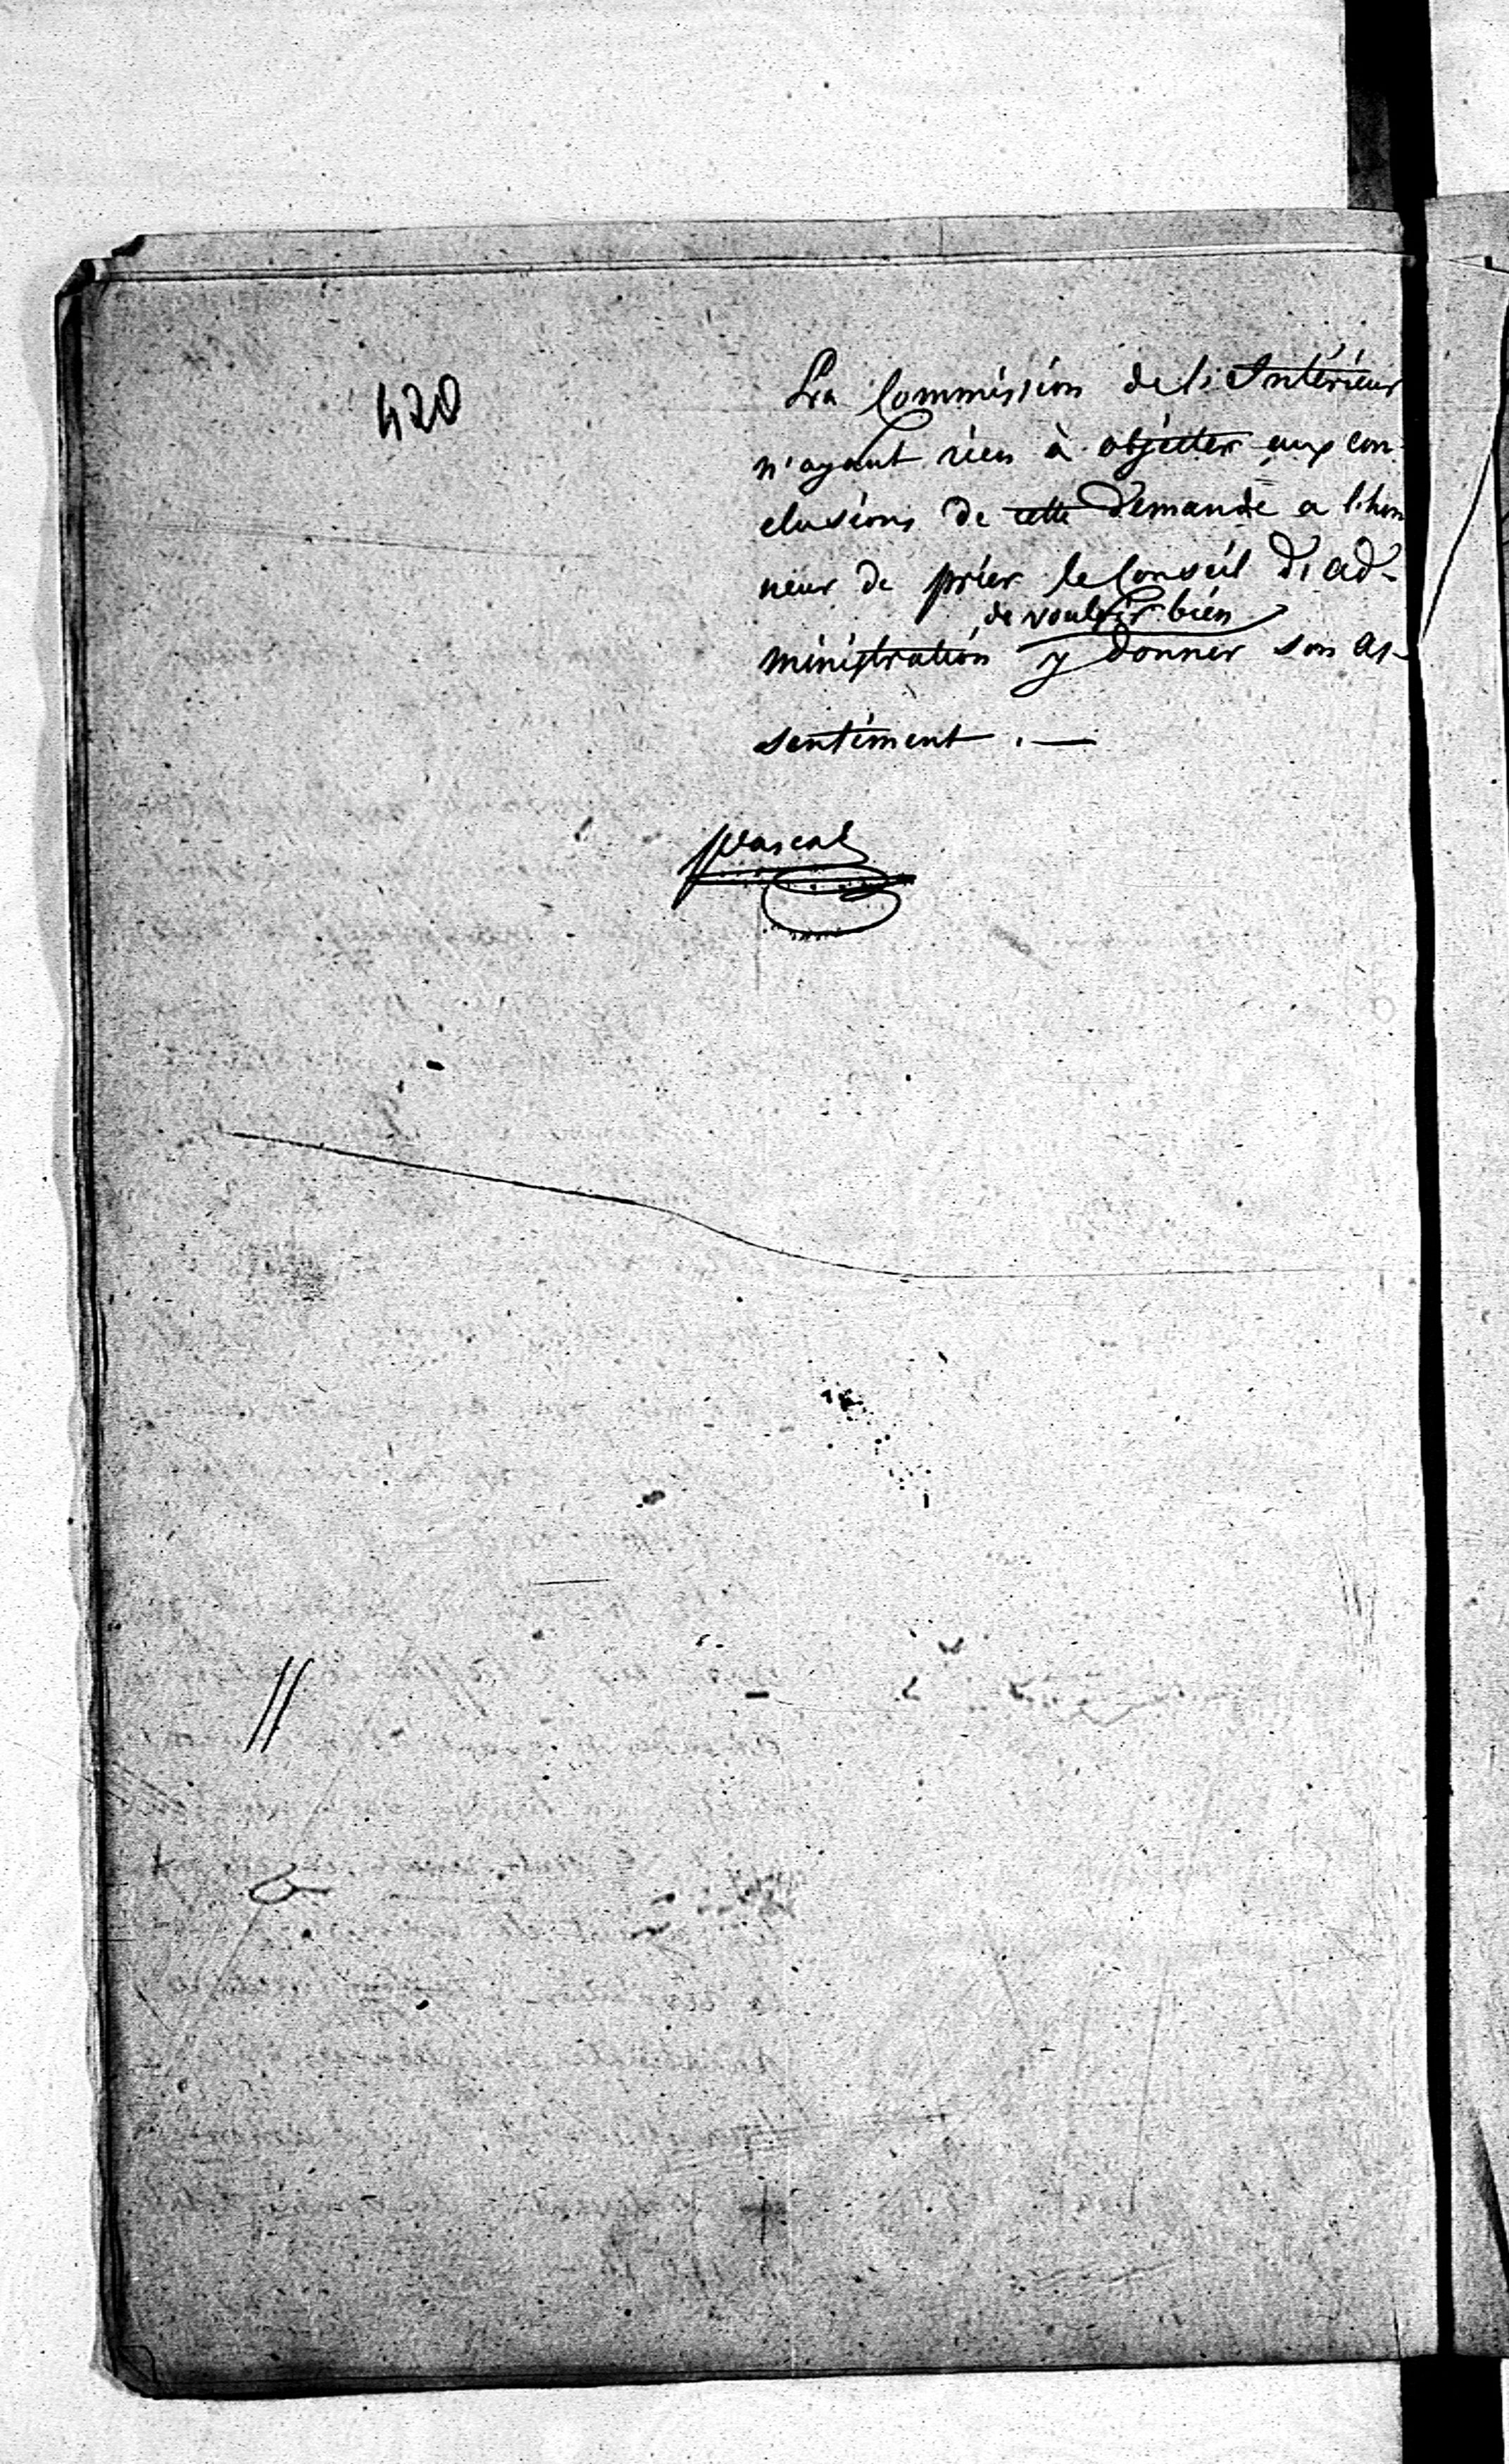 420
La Commission de l'Intérieur
n'ayant rien à objecter aux con-
clusions de cette demande a l'hon
neur de prier le Conseil d'ad-
de vouloir bien
ministration y donner son as-
sentiment . —
Pascal